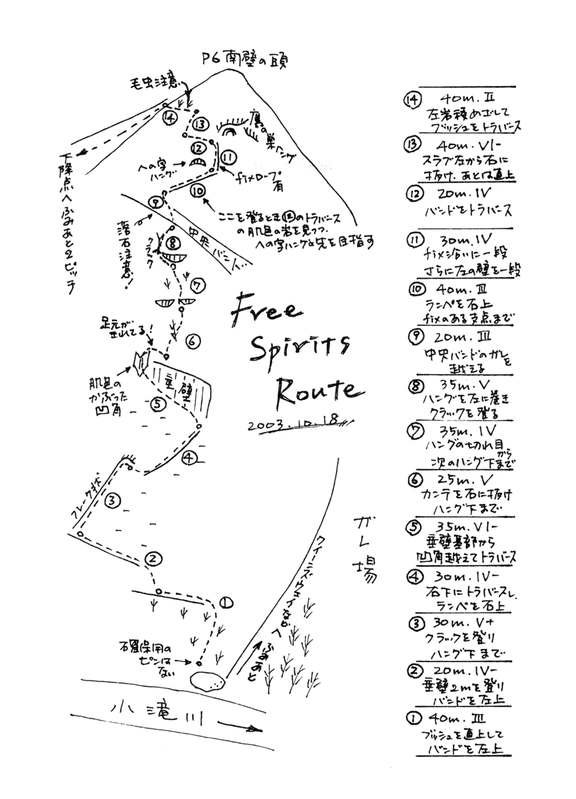 P6南壁の頭
毛虫注意
⑭
⑬
鷹の巣ハング
⑫
への字
ハング
⑪
fixロープ
有
⑩
下降点へふみあと2ピッチ
ここを登るとき⑭のトラバース
の肌色の岩を見つつ
への字ハング左先を目指す
⑨
落石注意!
⑧
クラック
中央バンド
⑦
足元が
きれてる
⑥
Free
Spirits
Route
2003.10.18
肌色の
かぶった
凹角
垂壁
⑤
④
フレーク状
③
②
①
ガレ場
クイーンズウェイなどへ
ふみあと
石確保用の
ピンは
ない
小滝川
⑭ 40m. II
左岩稜めざして
ブッシュをトラバース
⑬ 40m. VI-
スラブ左から右に
抜け、あとは直上
⑫ 20m. IV
バンドをトラバース
⑪ 30m. IV
fix沿いに一段
さらに左の壁を一段
⑩ 40m. III
ランペを右上
fixのある支点まで
⑨ 20m. III
中央バンドのガレを
越える
⑧ 35m. V
ハングを左に巻き
クラックを登る
⑦ 35m. IV
ハングの切れ目から
次のハング下まで
⑥ 25m. V
カンテを右に抜け
ハング下まで
⑤ 35m. VI-
垂壁基部から
凹角越えてトラバース
④ 30m. IV-
右下にトラバースし、
ランペを右上
③ 30m. V+
クラックを登り
ハング下まで
② 20m. IV-
垂壁2mを登り
バンドを左上
① 40m. III
ブッシュを直上して
バンドを左上